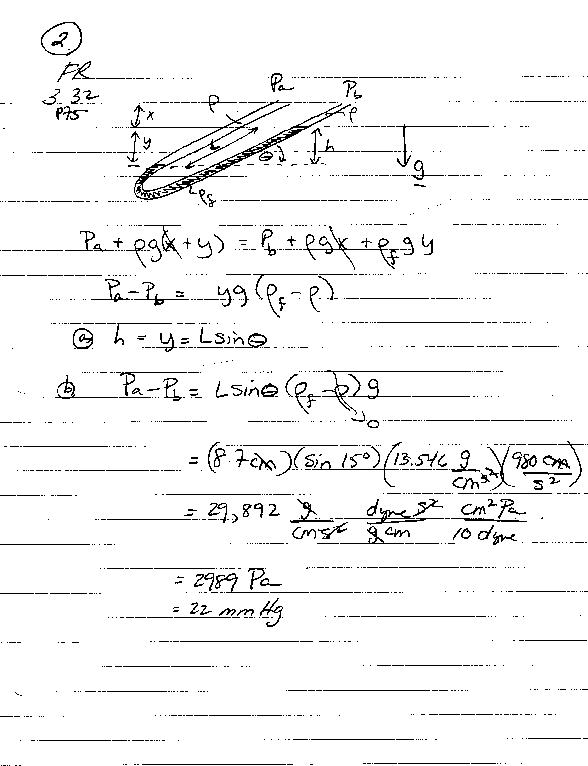 2
FR
3.32
P75
Pa
Pb
x
ρ
ρ
y
h
θ
g
ρf
Pa + ρg(x + y) = Pb + ρgx + ρf g y
Pa - Pb = yg(ρf - ρ)
(a) h = y = L sin θ
(b) Pa - Pb = L sin θ (ρf - ρ) g
0
= (8.7 cm)(sin 15°)(13.546 g/cm³)(980 cm/s²)
= 29,892 g/cm s² dyne s²/g cm cm² Pa/10 dyne
= 2989 Pa
= 22 mm Hg